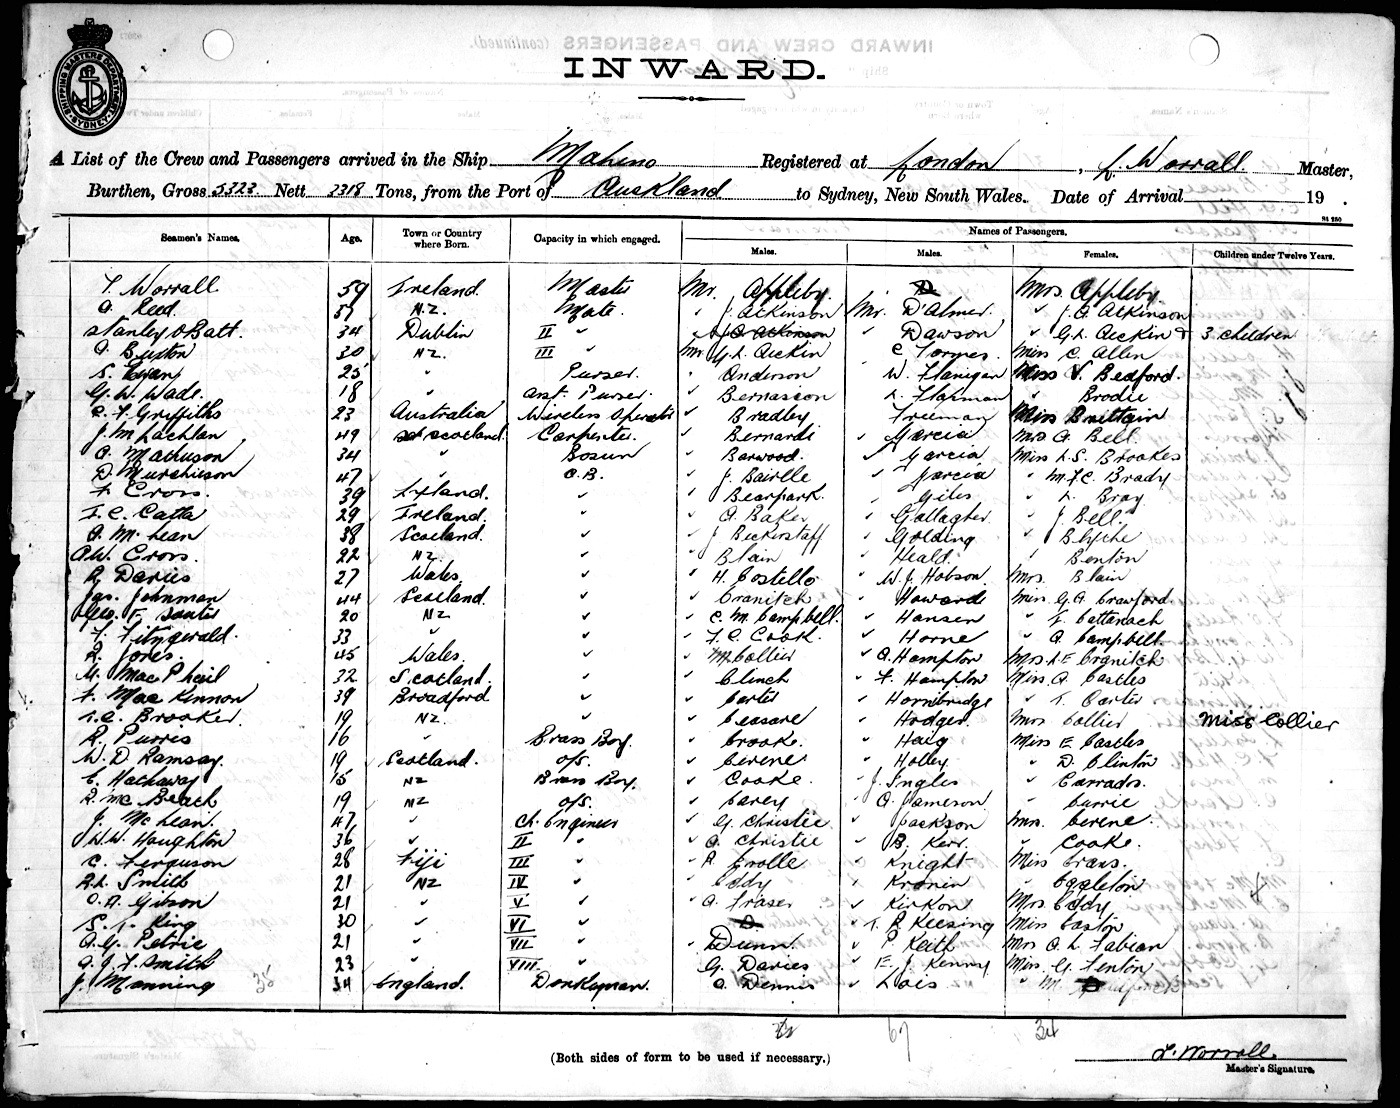 INWARD.
SHIPPING MASTERS DEPARTMENT SYDNEY
A List of the Crew and Passengers arrived in the Ship Maheno Registered at London, F. Worrall Master,
Burthen, Gross 5323 Nett 2318 Tons, from the Port of Auckland to Sydney, New South Wales. Date of Arrival 19 .
Seamen's Names. Age. Town or Country where Born. Capacity in which engaged. Names of Passengers.
Males. Males. Females. Children under Twelve Years.
F. Worrall 59 Ireland. Master Mr. Appleby. Mrs. Appleby.
A. Reed. 51 NZ. Mate. " J. Atkinson Mr. D'Almer. " J. A. Atkinson
Stanley O Batt. 34 Dublin II " Atkinson " Dawson " G. L. Aickin + 3 children
A. Buxton 30 NZ. III " Mr G. L. Aickin C. Formes. Miss C. Allen
S. Ewan 25 " Purser. " Anderson " W. Flanigan Miss V. Bedford.
G. W. Wade. 18 " Asst. Purser. " Bernasson " L. Flapman " Brodie
C. F. Griffiths 23 Australia Wireless Operator " Bradley " Freeman Miss Brittain
J. McLachlan 49 Scotland. Carpenter. " Bernardi " Garcia Mrs A. Bell.
A. Mathuson 34 " Bosun " Barwood. " Garcia Miss L. S. Brookes
D. Murchison 47 " A.B. " J. Bairlle " Garcia " M. F. C. Brady
F. Cross. 39 " " Bearpark. " Giles " L. Bray
I. C. Catta 29 Ireland. " " A. Baker " Gallagher. " J. Bell.
A. McLean 38 Scotland. " " J. Bickerstaff " Golding " Blythe
A. W. Cross. 22 NZ. " " Blain " Heald. " Benton
R. Davies 27 Wales. " " H. Costello " W. J. Hobson. Mrs. Blain
Jas. Johnman 44 Scotland. " " Cranitch " Howard Miss G. A. Crawford.
Geo. F. 20 NZ " " C. M. Campbell. " Hansen " F. Cattanach
F. Fitzgerald. 33 " " " F. C. Cook. " Horne " A. Campbell
R. Jones. 45 Wales. " " M. Collier " A. Hampton Mrs. L. E. Cranitch
M. MacPhail 32 Scotland. " " Clinch " F. Hampton Miss. A. Castles
F. MacKinnon 39 Bradford " " Carter " Hornibridge " T. Carter
F. C. Brooker. 19 NZ. " " Ceasare " Hodges. Mrs Collier Miss Collier
R. Purves 16 " Brass Boy. " Crooke. " Haig Miss E. Castles
W. D. Ramsay. 19 Scotland. O/S. " Cerene " Holley " D. Clinton
C. Hathaway 15 NZ Brass Boy. " Cooke. " J. Ingles " Carrados.
R. McBeath 19 NZ O/S. " Carey " A. Jameson " Currie
J. McLean. 47 " Ch. Engineer " G. Christie " Jackson Mrs. Cerene.
W. W. Haughton 36 " II " " A. Christie " B. Kerr. " Cooke.
C. Ferguson 28 Fiji III " " R. Crolle " Knight Miss Crans.
R. L. Smith 21 NZ IV " " Eddy " Kronin " Eggleton
O. A. Gibson 21 " V " " A. Fraser " Kirkon Mrs. Eddy
S. L. King 30 " VI " " T. R. Keesing Miss Easton
A. G. Petrie 21 " VII " " Dunn. " P. Keith Mrs A. L. Fabian
A. J. F. Smith 23 " VIII " G. Davies " E. J. Kenny Miss. G. Fenton
J. Manning 34 England. Donkeyman. " A. Dennis " Lois " M.
35 67 34
(Both sides of form to be used if necessary.)
F. Worrall.
Master's Signature.